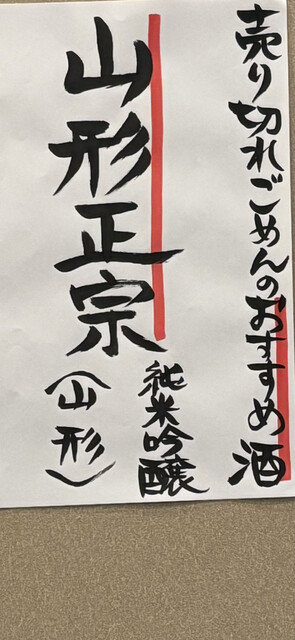 売り切れごめんのおすすめ酒
山形正宗
純米吟醸
（山形）